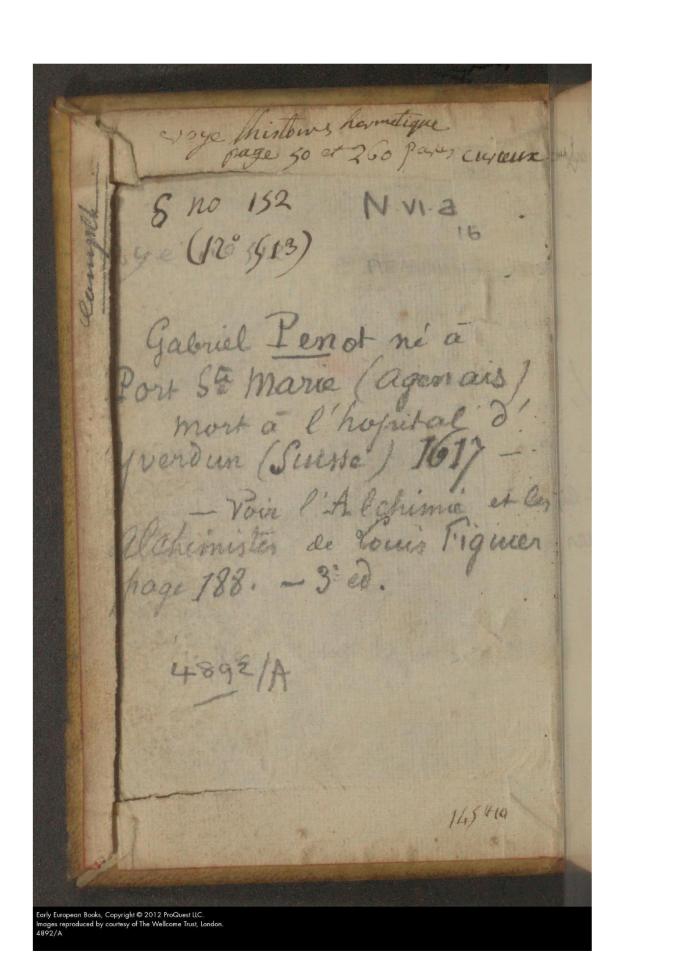 voye lhistoire hermetique
page 50 et 260 pages curieux
Complet
S no 152
N VI. a
16
(12° 513)
Gabriel Penot né à
Port Ste Marie (agenais)
mort à l'hopital d'
yverdun (Suisse) 1617 —
— Voir l'Alchimie et les
Alchimistes de Louis Figuier
page 188. — 3e ed.
4892/A
Early European Books, Copyright © 2012 ProQuest LLC.
Images reproduced by courtesy of The Wellcome Trust, London.
4892/A